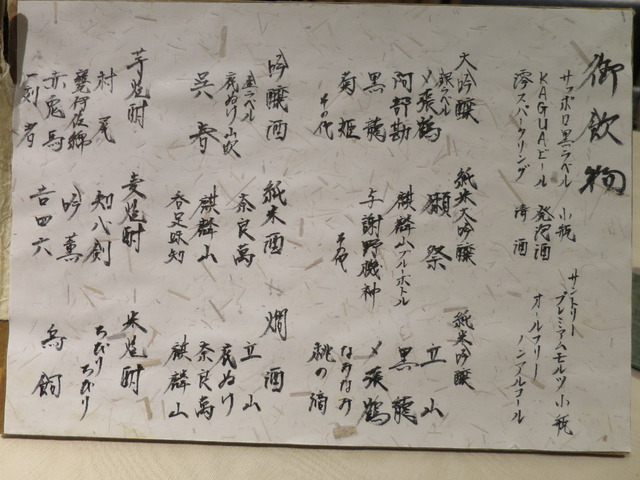 御飲物
サッポロ黒ラベル 小瓶
サントリー
プレミアムモルツ 小瓶
KAGUAビール 発泡酒
オールフリー
ノンアルコール
澪スパークリング 清酒
大吟醸
銀ラベル
〆張鶴
阿部勘
黒龍
菊姫
その他
純米大吟醸
獺祭
麒麟山ブルーボトル
与謝野機神
その他
純米吟醸
立山
黒龍
〆張鶴
なみなみ
桃の滴
吟醸酒
金ラベル
底ぬけ
呉春
純米酒
奈良萬
麒麟山
呑足
燗酒
立山
底ぬけ
奈良萬
麒麟山
芋焼酎
村尾
甕仔
赤兎馬
一刻者
麦焼酎
知心剣
吟薫
吉四六
米焼酎
ちびりちびり
鳥飼